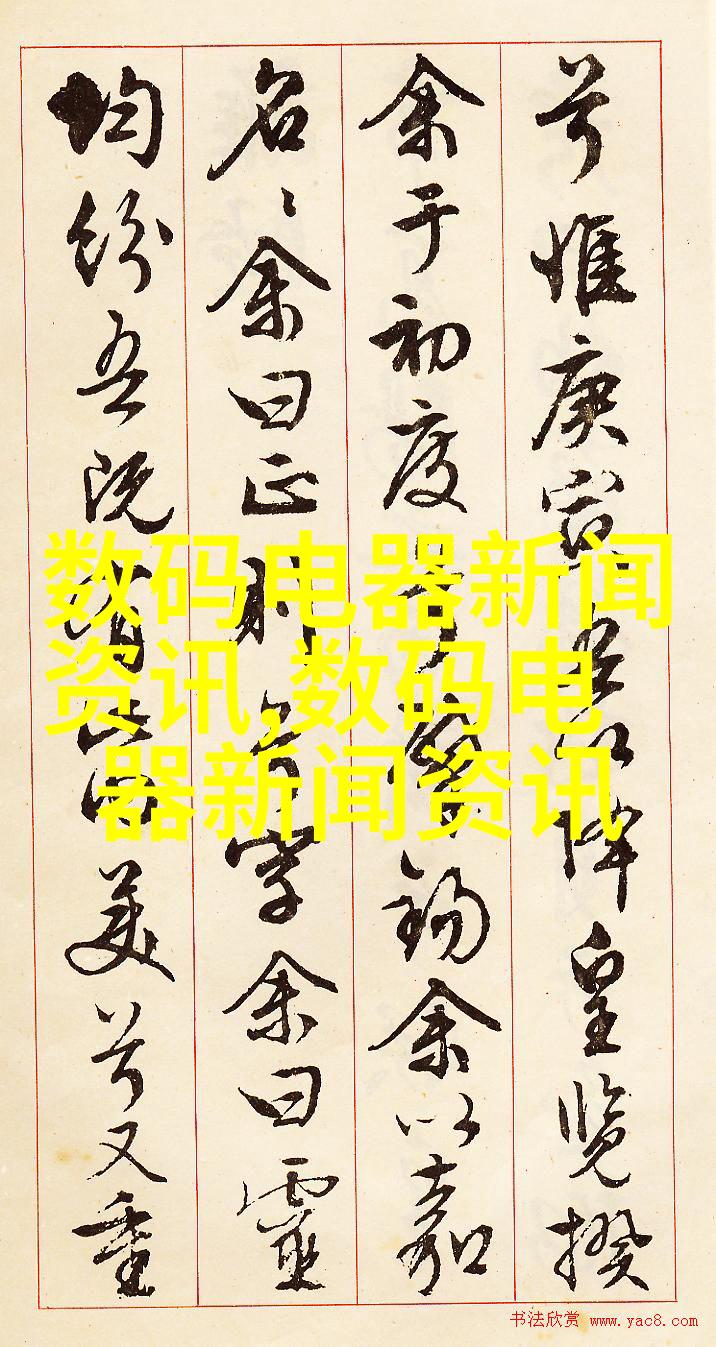 兮惟庚寅吾以降皇览揆
余于初度兮肇锡余以嘉
名〻余曰正则兮字余曰靈
均纷吾既有此内美兮又重
数码电器新闻
资讯,数码电
器新闻资讯
书法欣赏 www.yac8.com